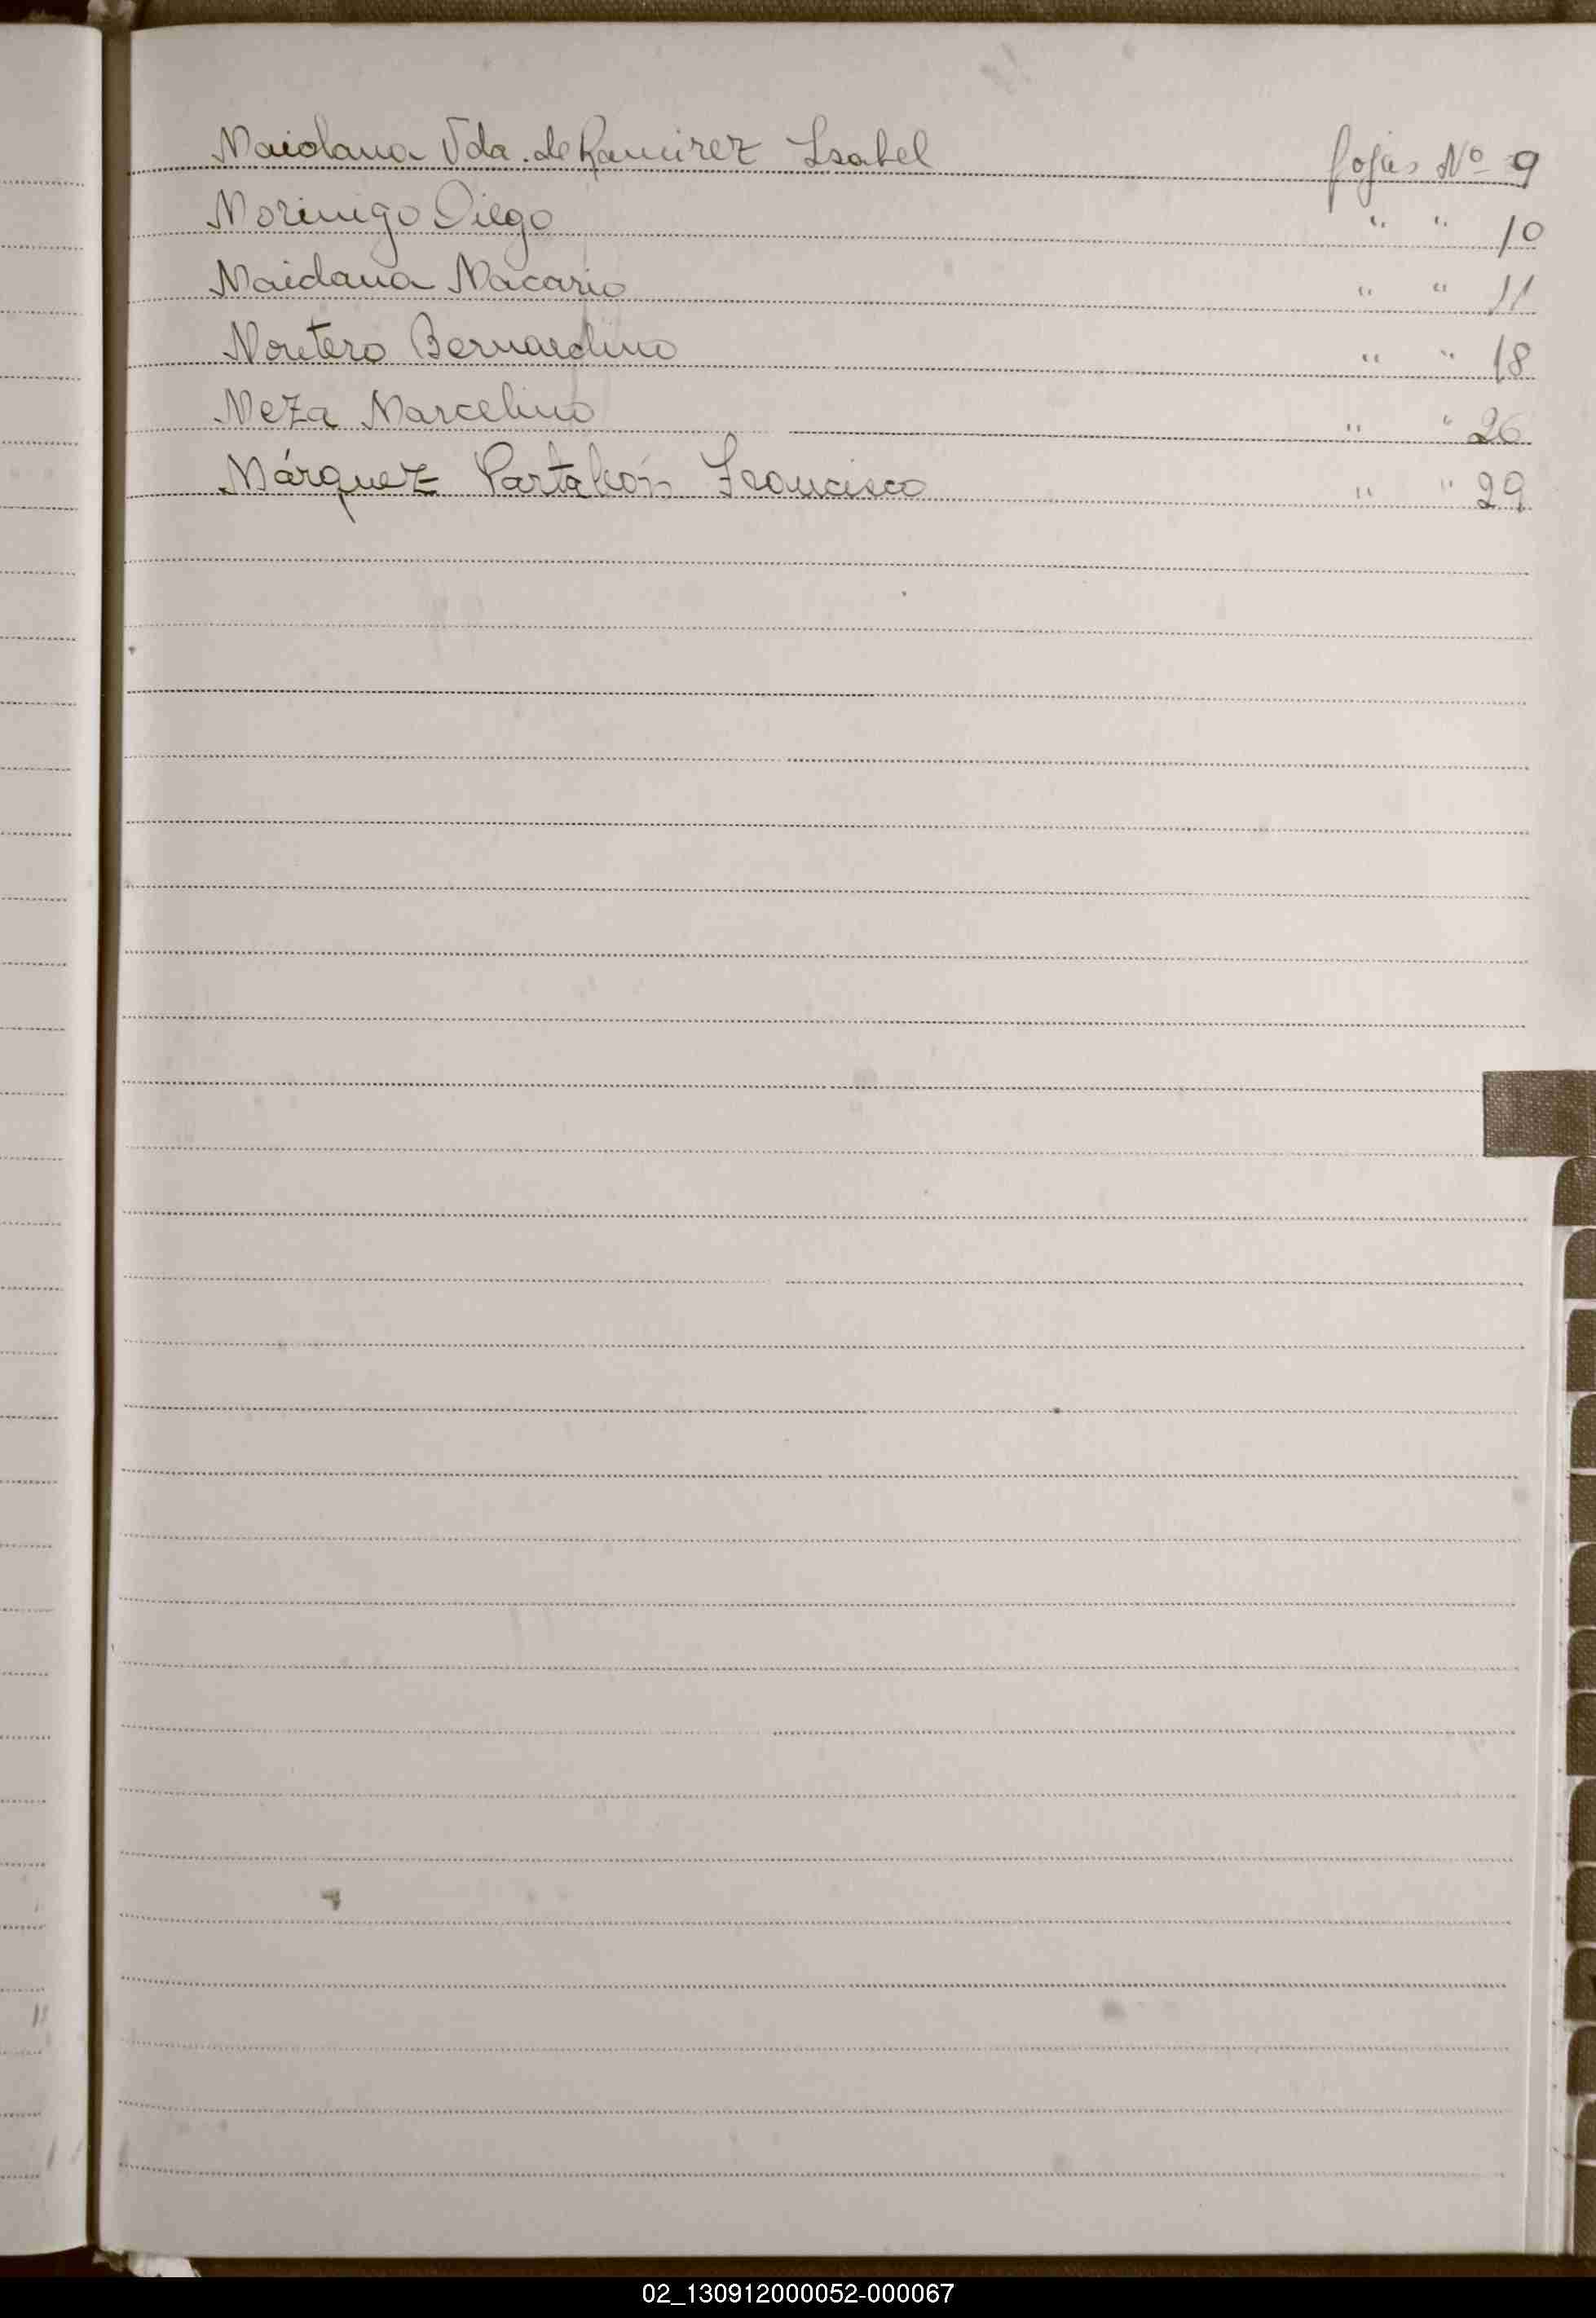 Maidana Vda. de Ramirez Isabel fojas Nº 9
Morinigo Diego " " 10
Maidana Macario " " 11
Montero Bernardino " " 18
Meza Marcelino " " 26
Márquez Partaleón Francisco " " 29
02_130912000052-000067